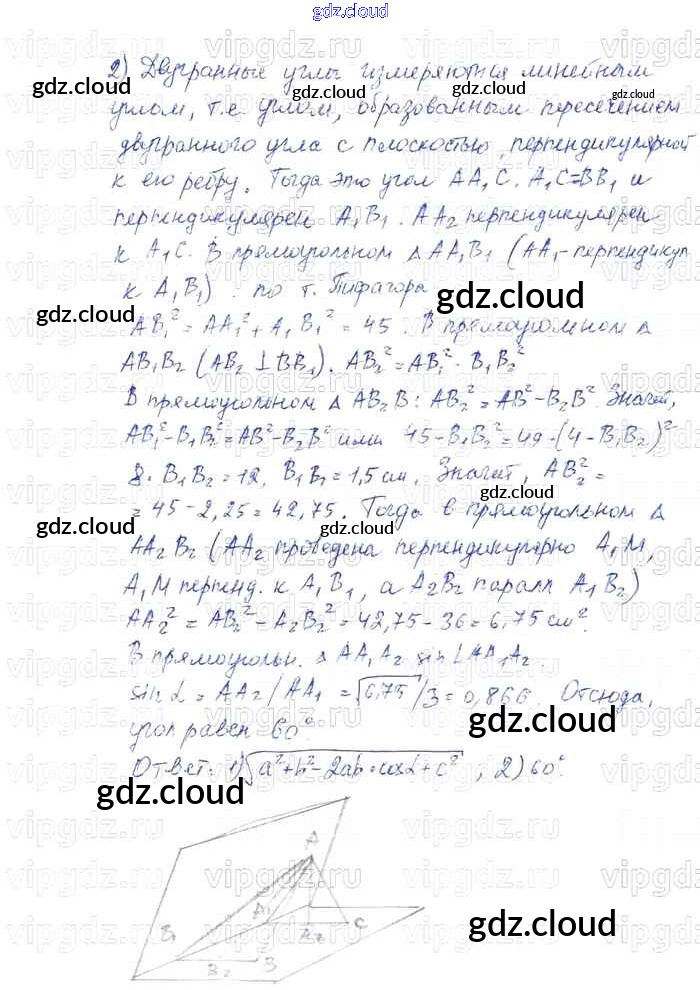 gdz.cloud
2) Двугранные углы измеряются линейным
углом, т.е. углом, образованным пересечением
двугранного угла с плоскостью, перпендикулярной
к его ребру. Тогда это угол AA₁C. A₁C=BB₁ и
перпендикулярен A₁B₁. AA₂ перпендикулярен
к A₁C. В прямоугольном △ AA₁B₁ (AA₁-перпендикул
к A₁B₁). по т. Пифагора
AB₁² = AA₁² + A₁B₁² = 45. В прямоугольном △
AB₁B₂ (AB₂ ⊥ BB₁). AB₂² = AB₁² - B₁B₂²
В прямоугольном △ AB₂B: AB₂² = AB² - B₂B². Значит,
AB₁² - B₁B₂² = AB² - B₂B² или 45 - B₁B₂² = 49 - (4 - B₁B₂)²
8 · B₁B₂ = 12, B₁B₂ = 1,5 см. Значит, AB₂² =
= 45 - 2,25 = 42,75. Тогда в прямоугольном △
AA₂B₂ (AA₂ проведена перпендикулярно A₁M,
A₁M перпенд. к A₁B₁, а A₂B₂ паралл A₁B₂)
AA₂² = AB₂² - A₂B₂² = 42,75 - 36 = 6,75 см².
В прямоугольн. △ AA₁A₂ sin ∠AA₁A₂.
sin ∠ = AA₂/AA₁ = √6,75/3 = 0,866 Отсюда,
угол равен 60°
Ответ: 1) √a²+b²-2ab·cosα+c², 2) 60°.
A
B₁
A₁
A₂
C
B₂
B
gdz.cloud
gdz.cloud
gdz.cloud
gdz.cloud
gdz.cloud
gdz.cloud
gdz.cloud
gdz.cloud
gdz.cloud
gdz.cloud
gdz.cloud
gdz.cloud
gdz.cloud